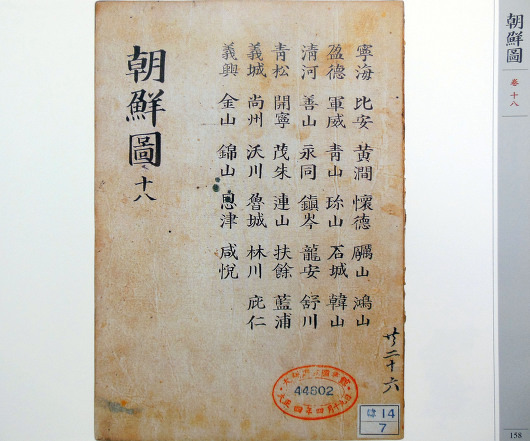 朝鮮圖
卷十八
寧海 比安 黃澗 懷德 礪山 鴻山
盈德 軍威 青山 珎山 石城 韓山
淸河 善山 永同 鎭岑 龍安 舒川
青松 開寧 茂朱 連山 扶餘 藍浦
義城 尙州 沃川 魯城 林川 庇仁
義興 金山 錦山 恩津 咸悅
朝鮮圖 十八
二十六
44802
14
7
158